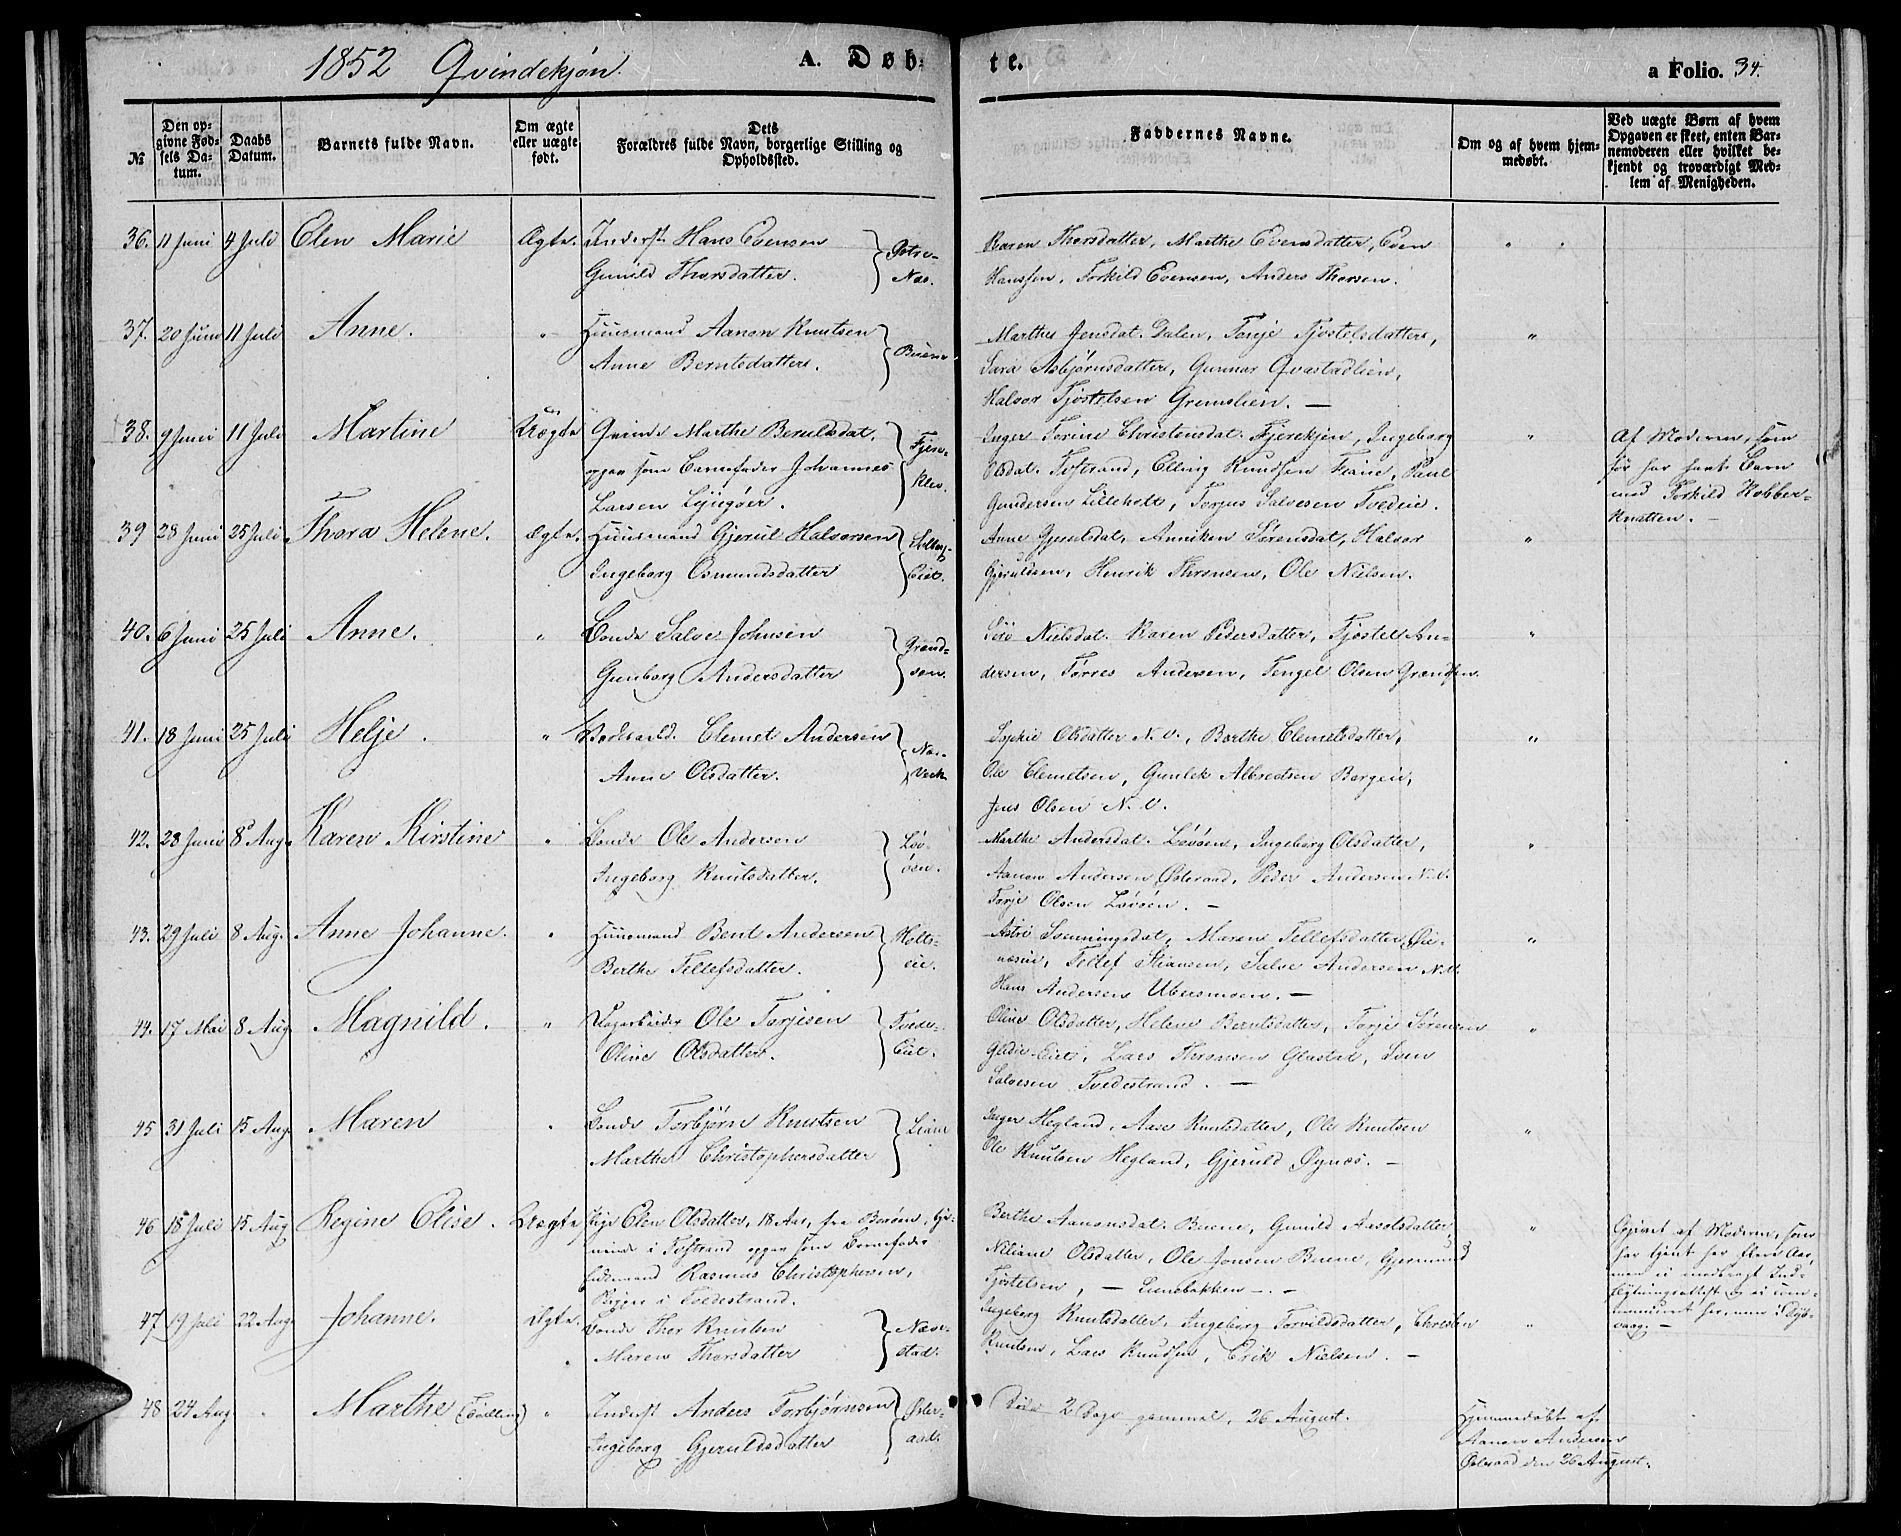 1852 Qvindekjøn. A. Døb- te. a Folio. 34.
№
Den op-
givne Fød-
sels Da-
tum.
Daabs
Datum.
Barnets fulde Navn.
Om ægte
eller uægte
født.
Dets
Forældres fulde Navn, borgerlige Stilling og
Opholdssted.
Faddernes Navne.
Om og af hvem hjem-
medøbt.
Ved uægte Børn af hvem
Opgaven er skeet, enten Bar-
nemoderen eller hvilket be-
kjendt og troværdigt Med-
lem af Menigheden.
36. 11 Juni 4 Juli Elen Marie Ægte. Inderst Hans Evensen
Gunild Thorsdatter.
Karen Thorsdatter, Marthe Evensdatter, Even
Hanssen, Torkild Evensen, Anders Thorsen.
37. 20 Juni 11 Juli Anne. " Huusmand Aanon Knutsen
Anne Berntsdatter. Buene
Marthe Jensdat. Dalen, Tonje Tjøstelsdatter,
Sara Asbjørnsdatter, Gunnar Qvastadlien,
Halvor Tjøstelsen Gremslien. —
38. 9 Juni 11 Juli Martine Uægte Qvinde Marthe Berulsdat.
opgav som Barnefader Johannes
Larsen Lyngøer.
Inger Torine Christensdat. Fjerekjen, Ingeborg
Olsdat. Tostrand, Elling Knudsen Fraine, Paul
Gundersen Lilleholt, Torjus Salvesen Tvedene.
Af Moderen, som
før har havt Barn
med Torkild Kobber-
knatten. —
39 28 Juni 25 Juli Thora Helene. Ægte. Huusmand Gjerul Halvorsen
Ingeborg Osmundsdatter
Anne Gjeruldsdat, Anniken Sørensdat, Halvor
Gjeruldsen, Henrik Thronsen, Ole Nielsen.
40. 6 Juni 25 Juli Anne. " Bonde Salve Johnsen
Gunborg Andersdatter Grønd-
søn.
Siro Nielsdat. Karen Pedersdatter, Tjøstel An-
dersen, Tørres Andersen, Tengel Olsen Grændsen.
41. 18 Juni 25 Juli Helje. " Clemet Andersen
Anne Olsdatter. Næs-
Verk
Sophie Olsdatter N. V., Barthe Clemetsdatter,
Ole Clemetsen, Gunlek Albretsen Borgen,
Jens Olsen N. V.
42. 28 Juni 8 Aug. Karen Kirstine " Bonde Ole Andersen
Ingeborg Knutsdatter. Løv-
øen.
Marthe Andersdat. Løvøen, Ingeborg Olsdatter,
Aanon Andersen Østeraad, Peder Andersen N. V.
Torje Olsen Løvøen. —
43. 29 Juli 8 Aug. Anne Johanne. " Huusmand Bent Andersen
Berthe Tellefsdatter. Holts-
eie.
Astri Svenningsdat, Maren Tellefsdatter Øie-
næsine, Tellef Stiansen, Salve Andersen N. V.
Hans Andersen Ubersmoen. —
44. 17 Mai 8 Aug. Magnild. " Dagarbeider Ole Torjesen
Oline Olsdatter. Tvede-
Eiet.
Oline Olsdatter, Helene Berntsdatter, Torje Sørensen
Lars Thronsen Glastad, Sven
Salvesen Tvedestrand. —
45 31 Juli 15 Aug. Maren " Bonde Torbjørn Knutsen
Marthe Christophersdatter Liane
Inger Hegland, Aase Knutsdatter, Ole Knutsen
Ole Knutsen Hegland, Gjeruld Øynæs. —
46 18 Juli 15 Aug. Regine Elise. Uægte Pige Elen Olsdatter, 18 Aar, fra Borøen, tje-
nende i Tostrand opgav som Barnefader
Rasmus Christophersen,
Skjøn i Tvedestrand.
Berthe Aanonsdat. Buene, Gunild Aasolsdatter,
Niliane Olsdatter, Ole Jonsen Buene, Gjermund
Tjøstelsen, — Lunebakken —. —
Opgivet af Moderen, som
har tjent her flere Aar,
men ei medbragt Ind-
flytningsattest og ei con-
firmeret her, men i Dyb-
vaag. —
47 19 Juli 22 Aug. Johanne. Ægte. Bonde Thor Knudsen
Maren Thorsdatter Næse-
stad.
Ingeborg Knutsdatter, Ingeborg Torvildsdatter, Christen
Knutsen, Lars Knudsen, Erik Nielsen. —
48 24 Aug. " Marthe (Tvilling) " Inderst Anders Torbjørnsen
Ingeborg Gjeruldsdatter Øster-
aad.
Døde 2 Dage gammel, 26 August.
Hjemmedøbt af
Aanon Andersen
Østeraad den 26 August.